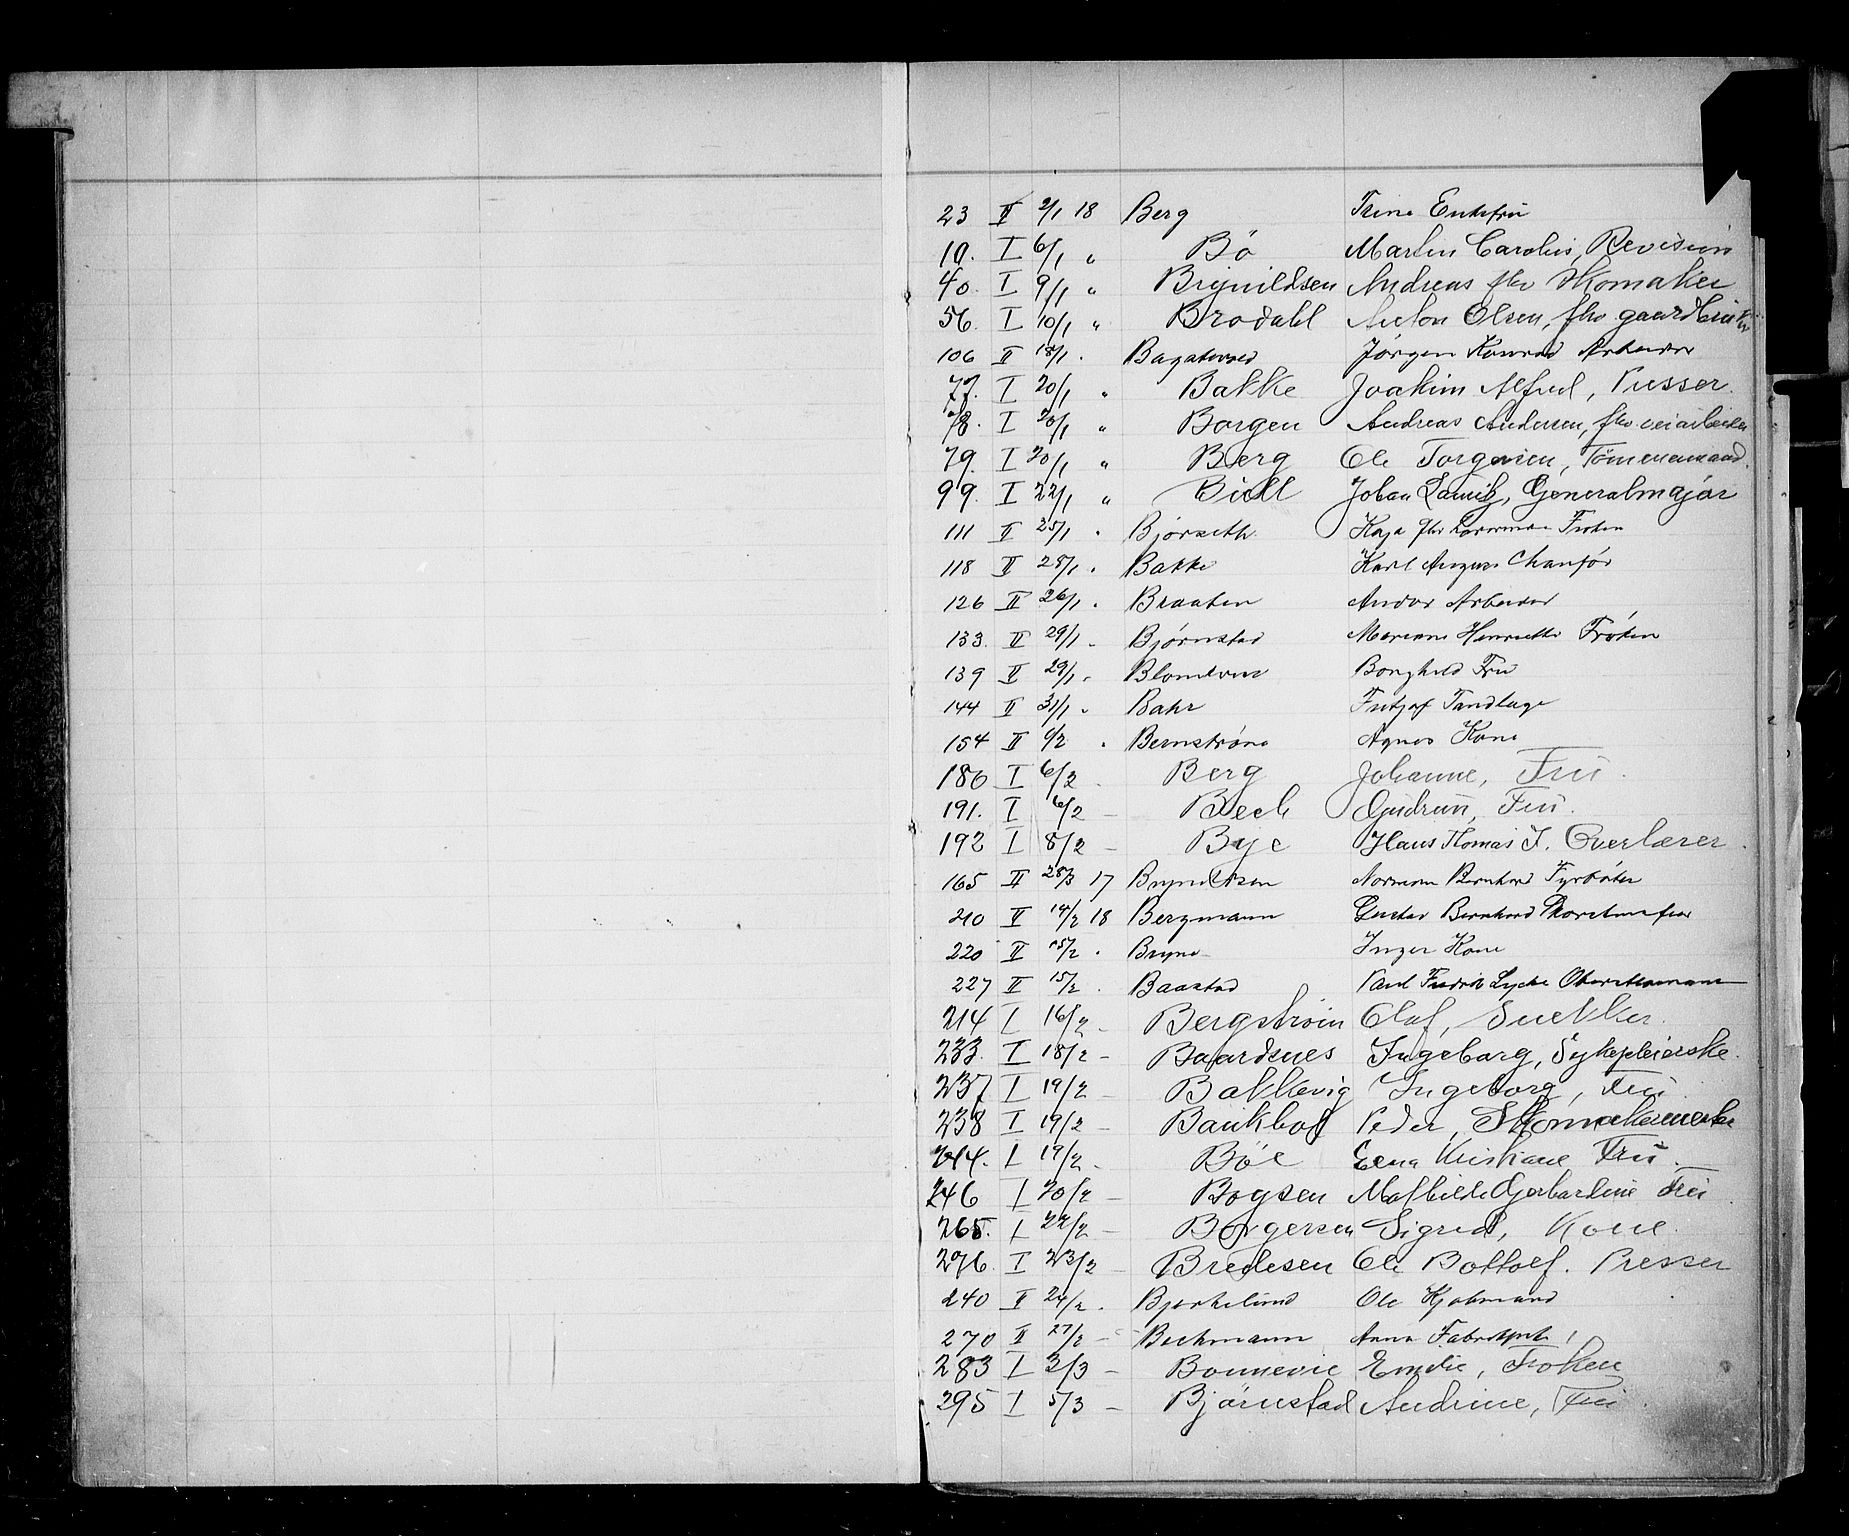 23 II 2/1 18 Berg Trine Enkefru
10. I 6/1 " Bö Martin Carolius, Revision
40. I 9/1 " Brynildsen Andreas fhv Skomaker
56. I 10/1 " Brodahl Anton Olsen, fhv. gaard
106 II 18/1 " Jörgen Konrad Arbeider
77. I 20/1 " Bakke Joakim Alfred, Pusser.
78. I 20/1 " Borgen Andreas Andersen, fhv. veiarbeider
79. I 20/1 " Berg Ole Torgersen, Tömmermand.
99. I 22/1 " Bull Johan Generalmajor
111 II 25/1 " Bjørseth Kaja fhv Frøken
118 II 28/1 " Bakke Karl August Chauför
126 II 26/1 " Braaten Andor Arbeider
133. II 29/1 " Bjørnstad Mariane Henriette Frøken
139 II 29/1 " Borghild Fru
144 II 31/1 " Bahr Fritjof Tandlæge
154 II 6/2 " Bernstrøm Agnes Kone
180 I 6/2 - Berg Johanne, Fru.
191. I 6/2 - Bech Gudrun, Fru.
192 I 8/2 - Bye Hans Thomas J. Overlærer.
165 II 28/3 17 Bernhard Fyrbøter
210 II 14/2 18 Bergmann Gustav Bernhard Skorstensfeier
220 II 15/2 " Bryne Inger Kone
227 II 15/2 " Baastad Paul Fredrik Lycke
214 I 16/2 - Bergström Olaf, Snekker.
233. I 18/2 - Baardsnes Ingeborg, Sykepleierske.
237 I 19/2 - Bakkevig Ingeborg, Fru
238 I 19/2 - Baukhol Peder, Skomakermester
244. I 19/2 - Böe Kristiane, Fru.
246 I 20/2 - Bogsen Mathilde Gerhardine Fru.
265. I 22/2 - Borgersen Sigrid, Kone
276. I 23/2 - Bredesen Ole Bottolf. Presser
240 II 24/2 . Bjørkelund Ole Kjøbmand
270 II 27/2 - Bechmann Anna
283 I 3/3 - Bonnevie Emilie, Frøken
295 I 5/3 - Bjørnstad Andrine, Fru.